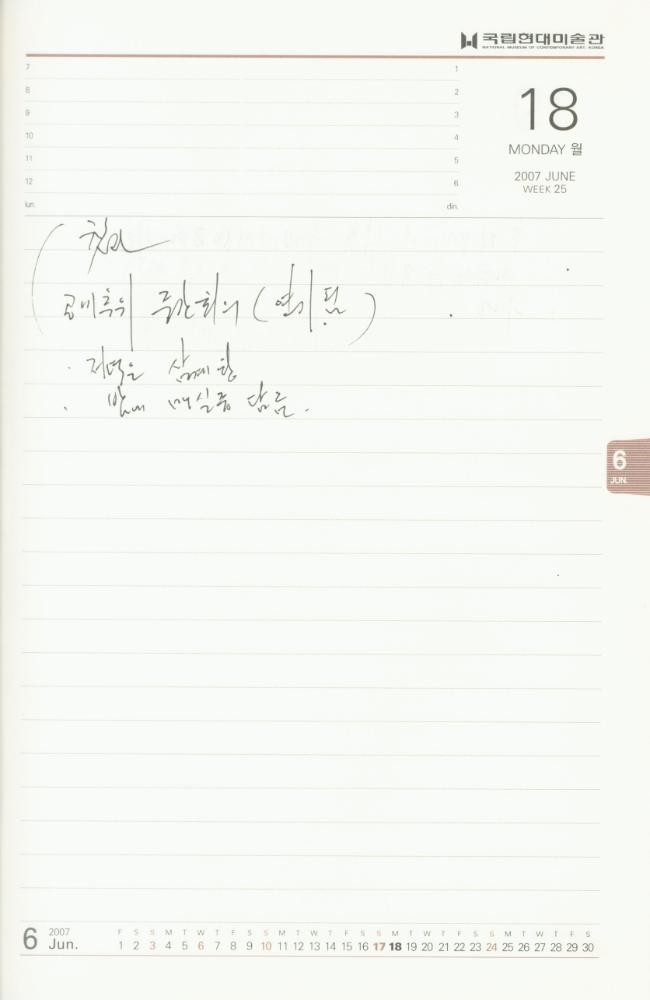 국립현대미술관
NATIONAL MUSEUM OF CONTEMPORARY ART, KOREA
7
8
9
10
11
12
lun.
1
2
3
4
5
6
din.
18
MONDAY 월
2007 JUNE
WEEK 25
회의 (연기됨)
· 저녁은 삼계탕
· 밤에 매실주 담금.
6
JUN.
6 2007 Jun.
F S S M T W T F S S M T W T F S S M T W T F S S M T W T F S
1 2 3 4 5 6 7 8 9 10 11 12 13 14 15 16 17 18 19 20 21 22 23 24 25 26 27 28 29 30